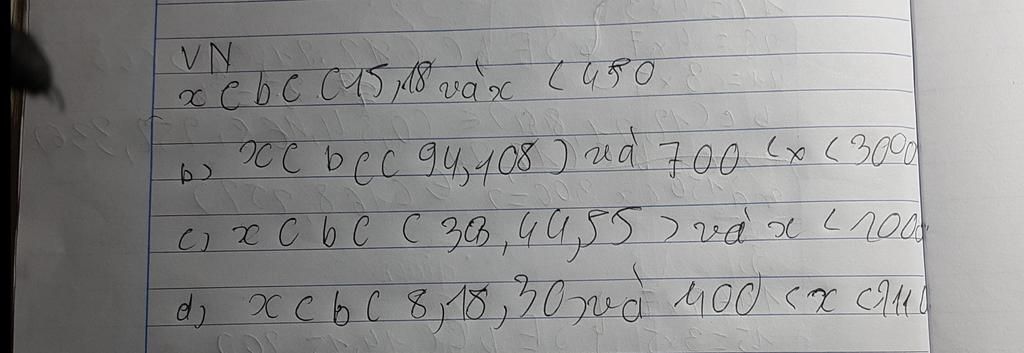 VN
x C b C C 15,18 và x < 450
b) x C b C C 94,108) và 700 < x < 3000
c) x C b C ( 33, 44, 55) và x < 1000
d) x C b C 8, 18, 30) và 400 < x <